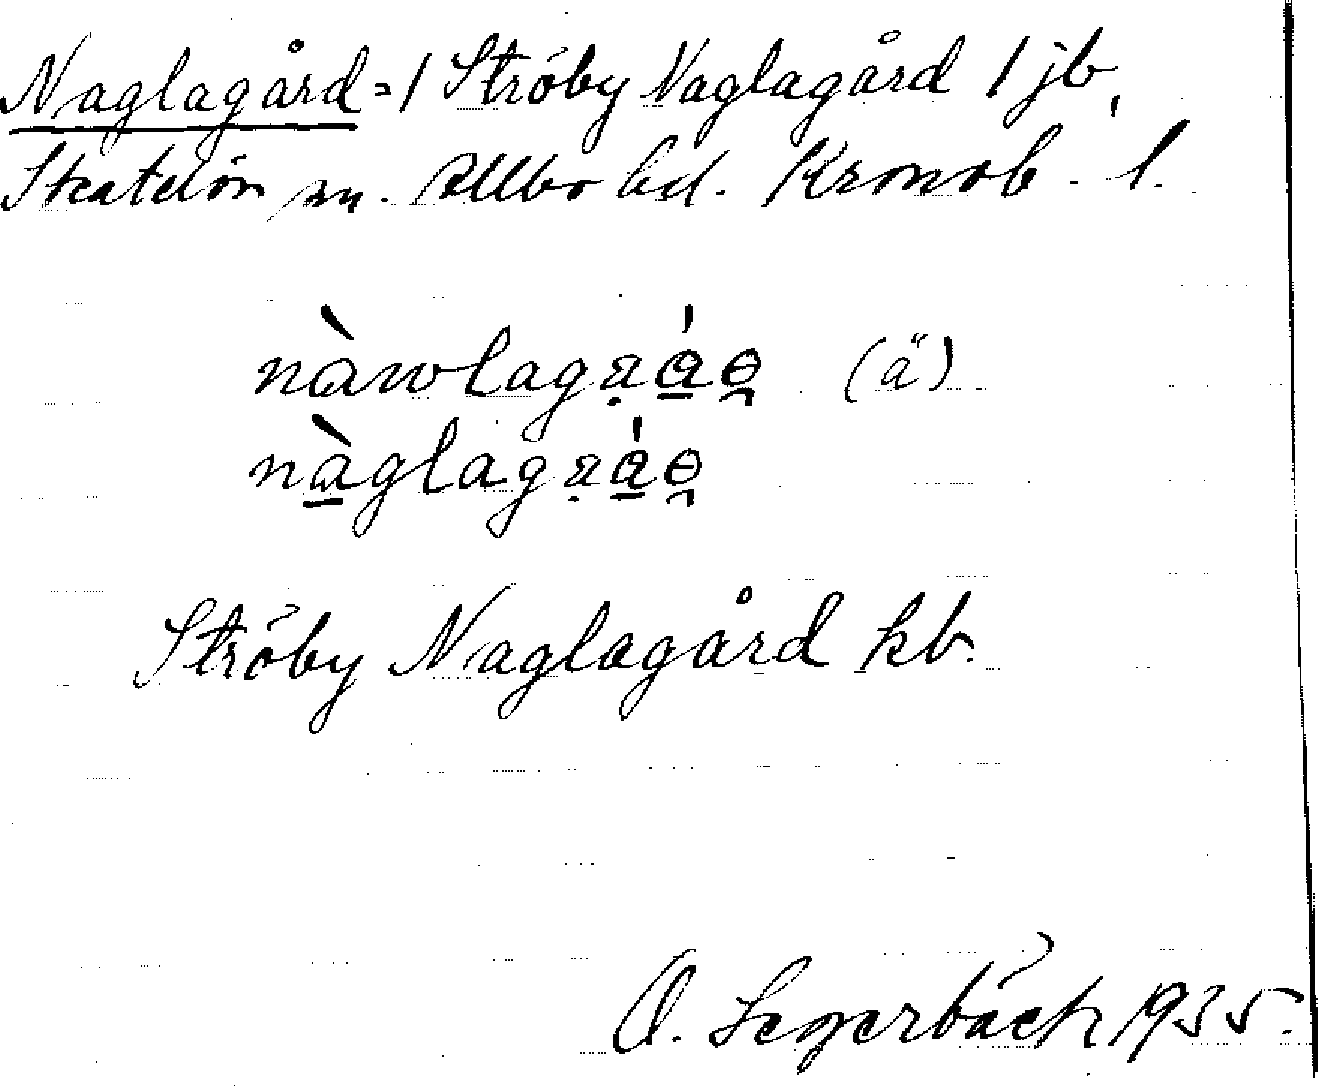 Naglagård = / Ströby Naglagård 1 jb,
Skatelöv sn. Allbo hd. Kronob. l.
nàwlag (ä)
nàglag
Ströby Naglagård kb.
O. Segerbäck 1935.